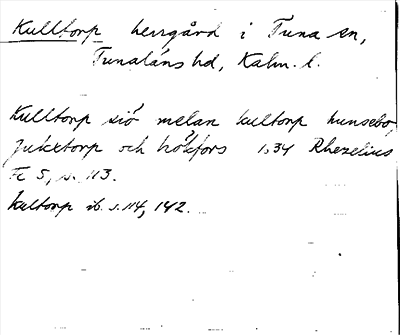 Kulltorp herrgård i Tuna sn,
Tunaläns hd, Kalm. l.
Kulltorp siö melan kultorp hunsebo,
jutxtorp och hökfors 1634 Rhezelius
Fc 5, s. 113.
kultorp ib. s. 114, 142.